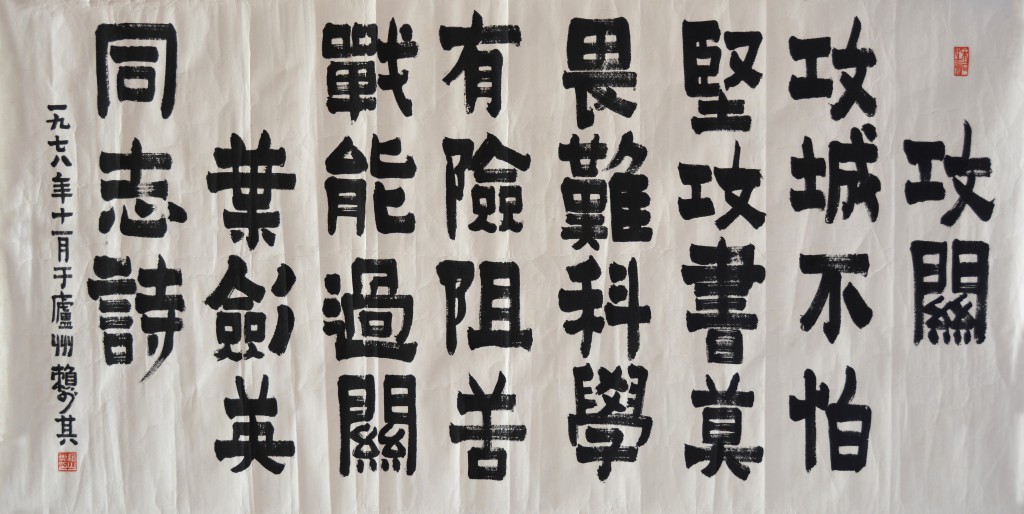 攻關
攻城不怕
堅攻書莫
畏難科學
有險阻苦
戰能過關
葉劍英
同志詩
一九七八年十一月于廬州賴少其